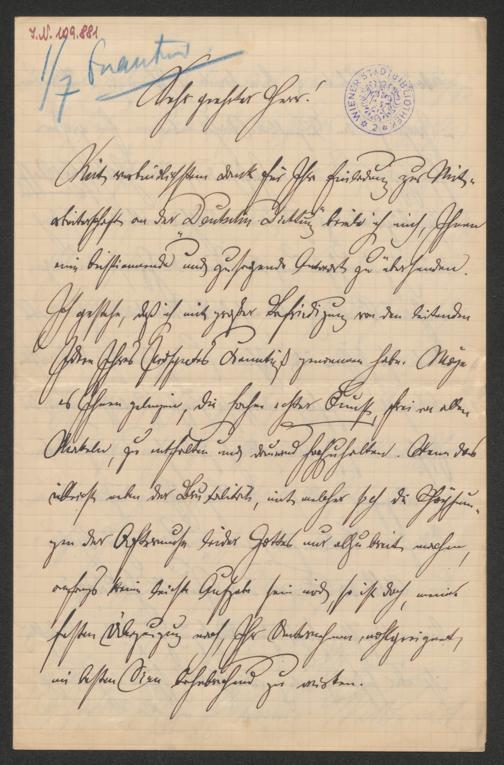 I.N. 109.881
1/7
WIENER STADTBIBLIOTHEK
Sehr geehrter Herr!
Mit verbindlichstem Dank für Ihre Einladung zur Mit-
arbeiterschaft an der "Deutschen Dichtung" beeile ich mich, Ihnen
eine beistimmende und zusagende Antwort zu übersenden.
Ich gestehe, daß ich mit großer Befriedigung von den leitenden
Ideen Ihres Prospectes Kenntniß genommen habe. Möge
es Ihnen gelingen, die Fahne echter Kunst, frei von allen
Makeln, zu entfalten und dauernd hochzuhalten. Wenn das
neben der Brutalität, mit welcher sich die Schöpfun-
gen der Aftermuse leider Gottes nur allzu breit machen,
anfangs keine leichte Aufgabe sein wird, so ist doch, meiner
festen Überzeugung nach, Ihr Unternehmen wohlgeeignet,
im besten Sinn bahnbrechend zu wirken.